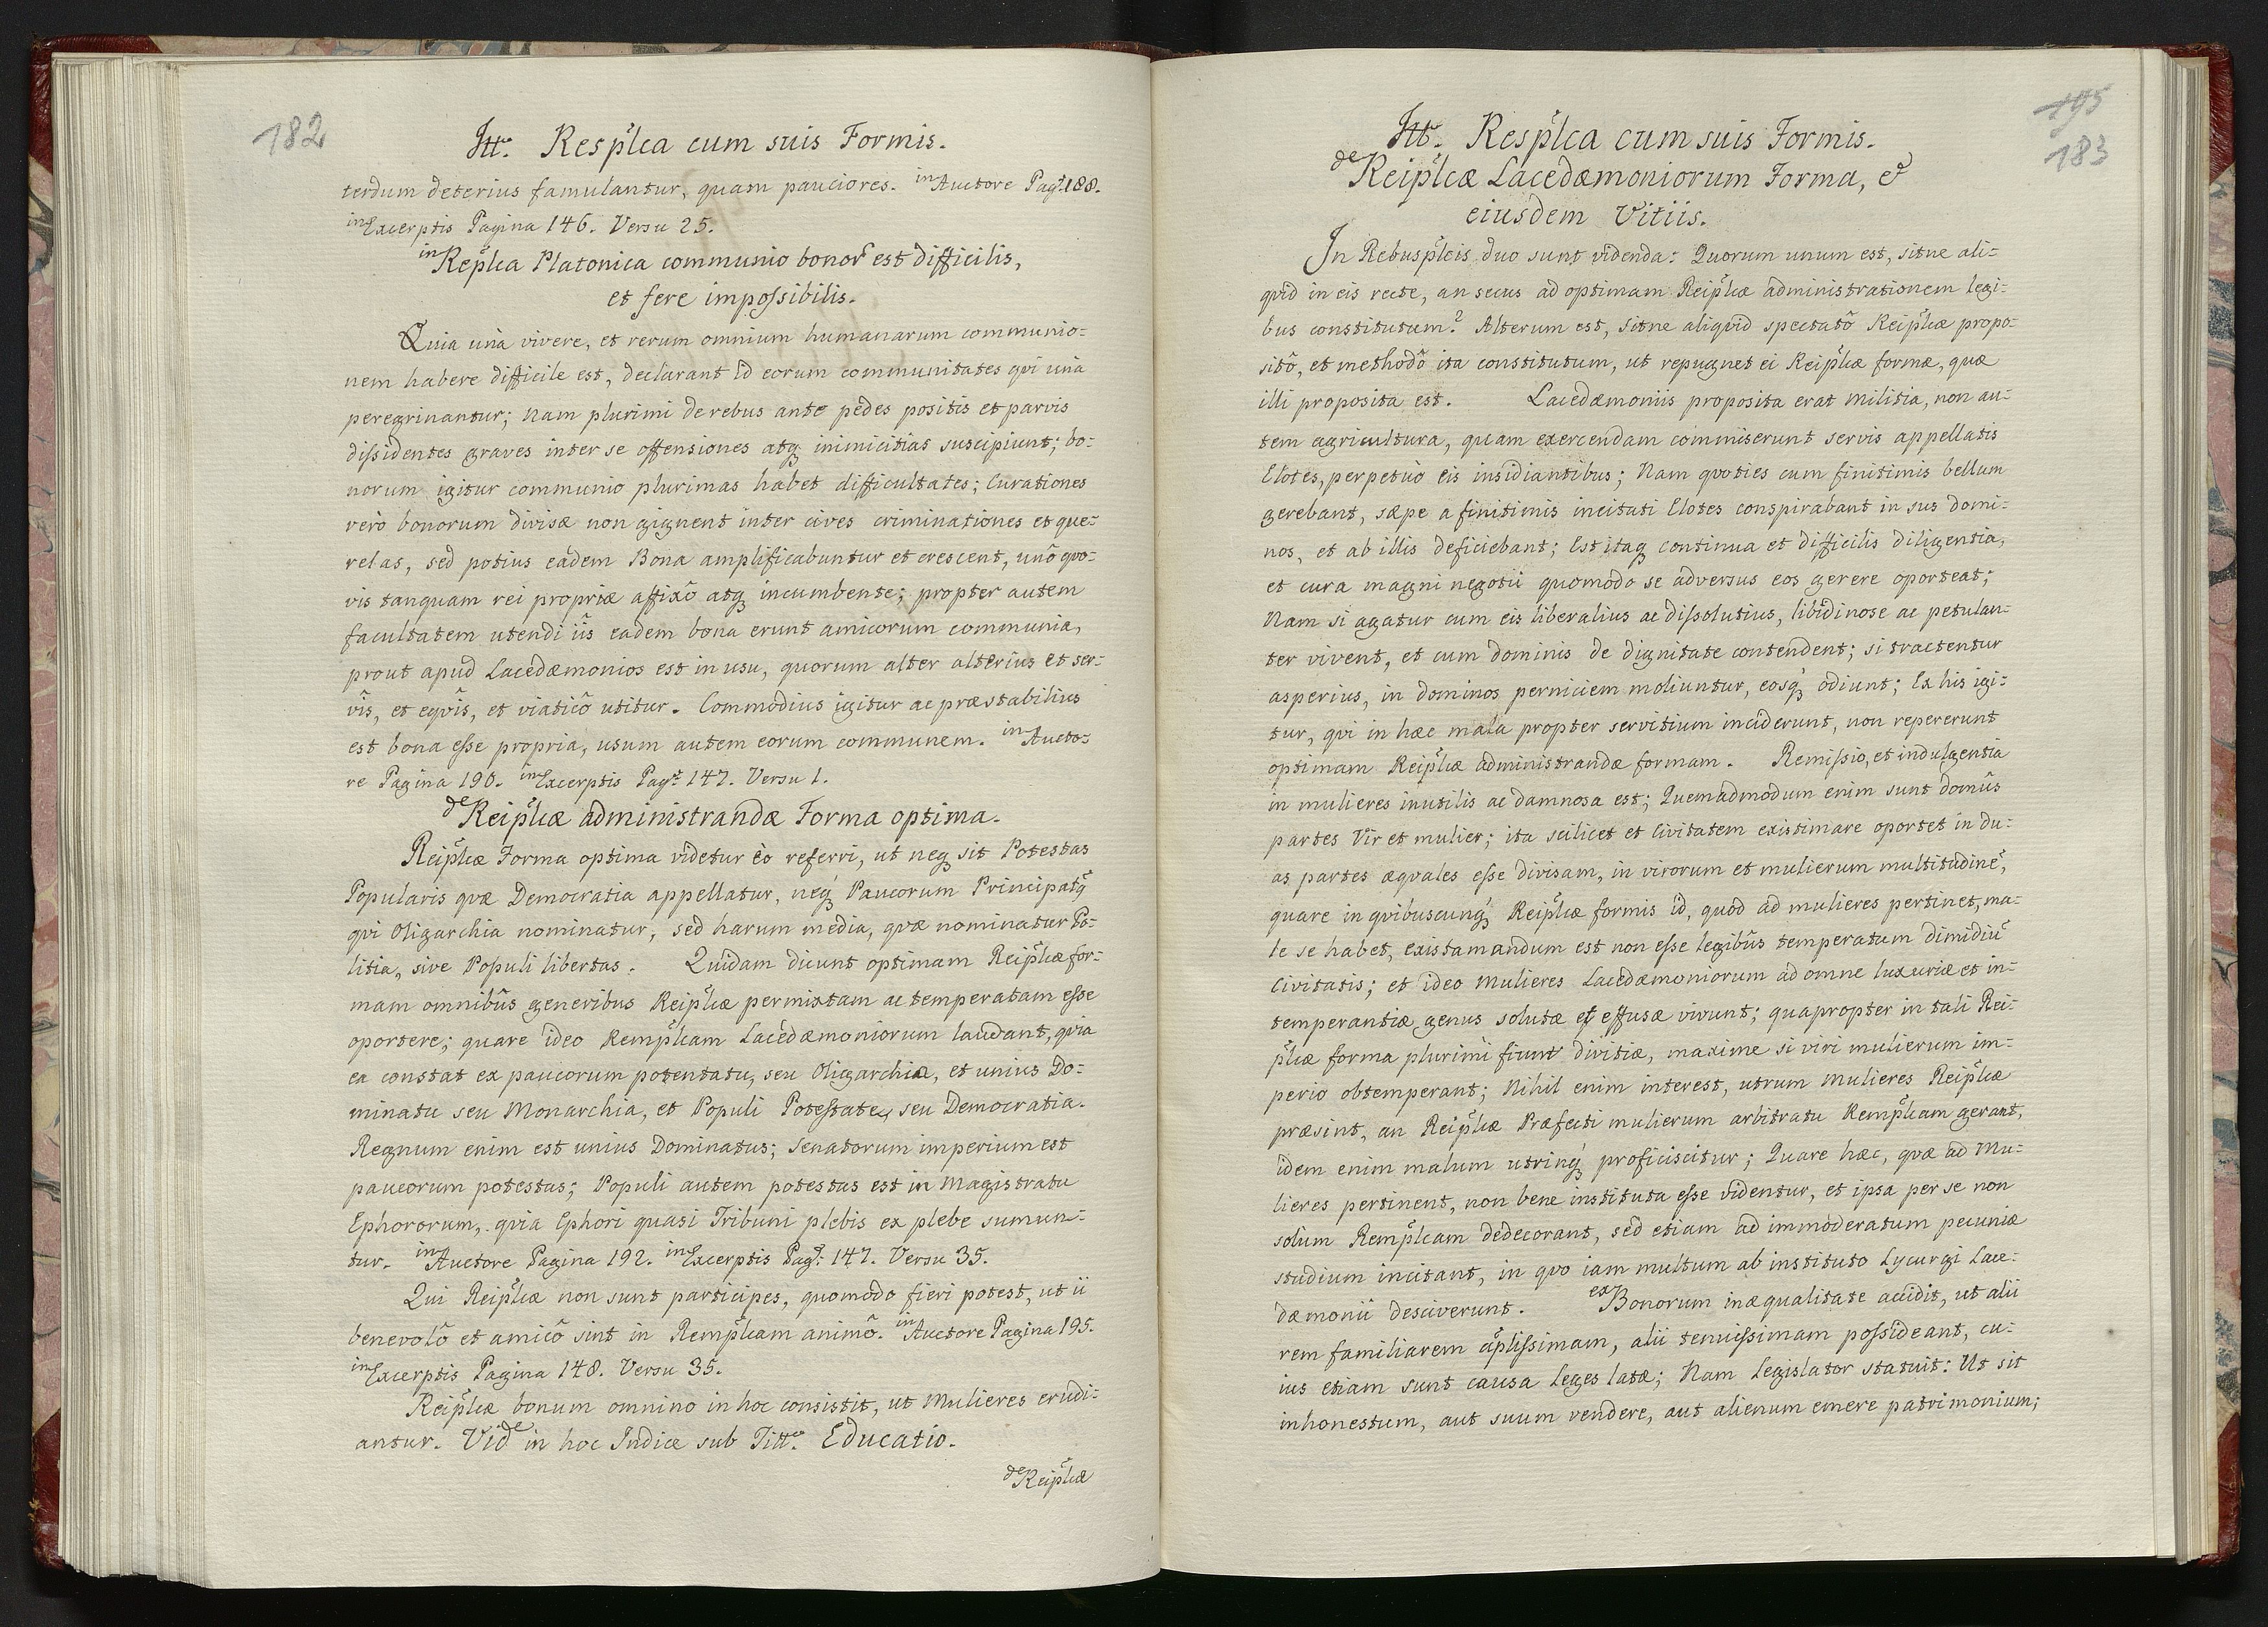 182
Itt. Resplca cum suis Formis.
terdum deterius famulantur, quam pauciores. in Auctore Pag. 188.
in Excerptis Pagina 146. Versu 25.
in Replca Platonica communio bonor est difficilis,
et fere impossibilis.
Quia unà vivere, et rerum omnium humanarum communio-
nem habere difficile est, declarant id eorum communitates qvi unà
peregrinantur; Nam plurimi de rebus ante pedes positis et parvis
dissidentes graves inter se offensiones atq inimicitias suscipiunt; bo-
norum igitur communio plurimas habet difficultates; Curationes
verò bonorum divisæ non gignent inter cives criminationes et que-
relas, sed potius eadem Bona amplificabuntur et crescent, unô qvo-
vis tanquam rei propriæ affixô atq incumbente; propter autem
facultatem utendi iîs eadem bona erunt amicorum communia,
prout apud Lacedæmonios est in usu, quorum alter alterius et ser-
vîs, et eqvîs, et viaticô utitur. Commodius igitur ac præstabilius
est bona esse propria, usum autem eorum communem. in Aucto-
re Pagina 190. in Excerptis Pag. 147. Versu 1.
de Reiplcæ administrandæ Forma optima.
Reiplcæ Forma optima videtur eò referri, ut neq sit Potestas
Popularis qvæ Democratia appellatur, neq Paucorum Principatq
qvi Oligarchia nominatur, sed harum media, qvæ nominatur Po-
litia, sive Populi libertas. Quidam dicunt optimam Reiplcæ for-
mam omnibûs generibus Reiplcæ permixtam ac temperatam esse
oportere; quare ideo Remplcam Lacedæmoniorum laudant, qvia
ea constat ex paucorum potentatu, seu Oligarchia, et unius Do-
minatu seu Monarchia, et Populi Potestate, seu Democratia.
Regnum enim est unius Dominatus; Senatorum imperium est
paucorum potestas; Populi autem potestas est in Magistratu
Ephororum, qvia Ephori quasi Tribuni plebis ex plebe sumun-
tur. in Auctore Pagina 192. in Excerptis Pag. 147. Versu 35.
Qui Reiplcæ non sunt participes, quomodo fieri potest, ut ii
benevolô et amicô sint in Remplcam animô. in Auctore Pagina 195.
in Excerptis Pagina 148. Versu 35.
Reiplcæ bonum omnino in hoc consistit, ut Mulieres erudi-
antur. Vide in hoc Indice sub Titt. Educatio.
de Reiplcæ
195
183
Itt. Resplca cum suis Formis.
de Reiplcæ Lacedæmoniorum Forma, &
eiusdem Vitiis.
In Rebusplcis duo sunt videnda: Quorum unum est, sitne ali-
qvid in eis recte, an secus ad optimam Reiplcæ administrationem legi-
bus constitutum? Alterum est, Sitne aliqvid spectatô Reiplcæ propo-
sitô, et methodô ita constitutum, ut repugnet ei Reiplcæ formæ, quæ
illi proposita est. Lacedæmoniis proposita erat Militia, non au-
tem agricultura, quam exercendam commiserunt servis appellatis
Elotes, perpetuò eis insidiantibus; Nam qvoties cum finitimis bellum
gerebant, sæpe a finitimis incitati Elotes conspirabant in sus domi-
nos, et ab illis deficiebant; Est itaq continua et difficilis diligentia,
et cura magni negotii quomodo se adversus eos gerere oporteat;
Nam si agatur cum eis liberalius ac dissolutius, libidinose ac petulan-
ter vivent, et cum dominis de dignitate contendent; si tractentur
asperius, in dominos perniciem moliuntur, eosq odiunt; Ex his igi-
tur, qvi in hæc mala propter servitium inciderunt, non repererunt
optimam Reiplcæ administrandæ formam. Remissio, et indulgentia
in mulieres inutilis ac damnosa est; Quemadmodum enim sunt domûs
partes Vir et mulier; ita scilicet et Civitatem existimare oportet in du-
as partes æqvales esse divisam, in virorum et mulierum multitudinē,
quare in qvibuscunq Reiplcæ formis id, quod ad mulieres pertinet, ma-
le se habet, existamandum est non esse legibûs temperatum dimidiū
Civitatis; et ideo Mulieres Lacedæmoniorum ad omne luxuriæ et in-
temperantiæ genus solutæ et effusæ vivunt; quapropter in tali Rei-
plcæ forma plurimi fiunt divitiæ, maxime si viri mulierum im-
perio obtemperant; Nihil enim interest, utrum Mulieres Reiplcæ
præsint, an Reiplcæ Præfecti mulierum arbitratu Remplcam gerant,
idem enim malum utrinq proficiscitur; Quare hæc, qvæ ad Mu-
lieres pertinent, non bene instituta esse videntur, et ipsa per se non
solum Remplcam dedecorant, sed etiam ad immoderatum pecuniæ
studium incitant, in qvo iam multum ab instituto Lycurgi Lace-
dæmonii desciverunt. ex Bonorum inæqualitate accidit, ut alii
rem familiarem āplissimam, alii tenuissimam possideant, cu-
ius etiam sunt causa Leges latæ; Nam Legislator statuit: Ut sit
inhonestum, aut suum vendere, aut alienum emere patrimonium;